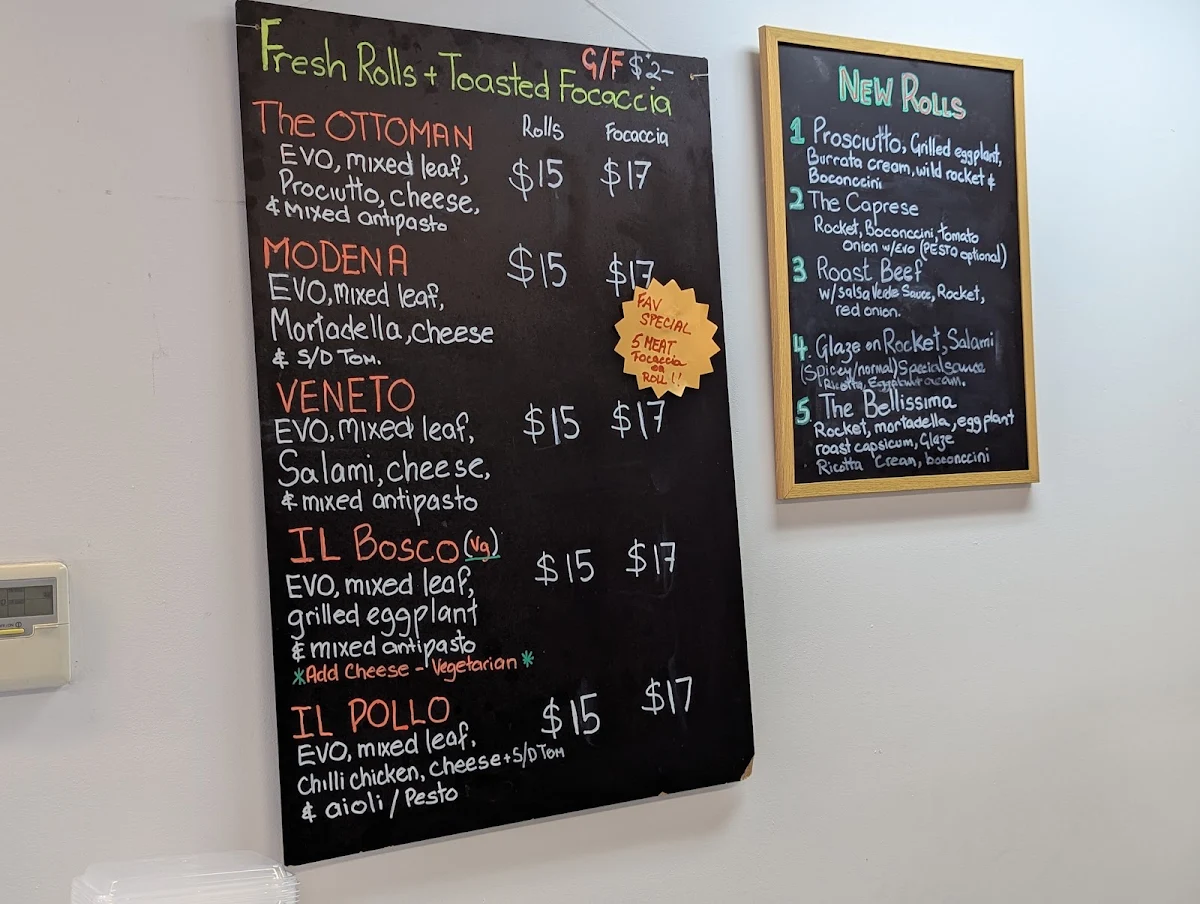 Fresh Rolls + Toasted Focaccia
G/F $2-
Rolls Focaccia
The OTTOMAN
$15 $17
EVO, mixed leaf,
Prociutto, cheese,
& mixed antipasto
MODENA
$15 $17
EVO, mixed leaf,
Mortadella, cheese
& S/D TOM.
FAV
SPECIAL
5 MEAT
Focaccia
OR
ROLL!!
VENETO
$15 $17
EVO, mixed leaf,
Salami, cheese,
& mixed antipasto
IL Bosco (Vg)
$15 $17
EVO, mixed leaf,
grilled eggplant
& mixed antipasto
*Add Cheese - Vegetarian *
IL POLLO
$15 $17
EVO, mixed leaf,
Chilli chicken, cheese + S/D TOM
& aioli / Pesto
NEW ROLLS
1 Prosciutto, Grilled eggplant,
Burrata cream, wild rocket &
Boconccini
2 The Caprese
Rocket, Boconccini, tomato
onion w/Evo (PESTO optional)
3 Roast Beef
w/salsa Verde Sauce, Rocket,
red onion.
4. Glaze on Rocket, Salami
(Spicey/normal) Special sauce
Ricotta, cream.
5 The Bellissima
Rocket, mortadella, eggplant
roast capsicum, Glaze
Ricotta Cream, boconccini